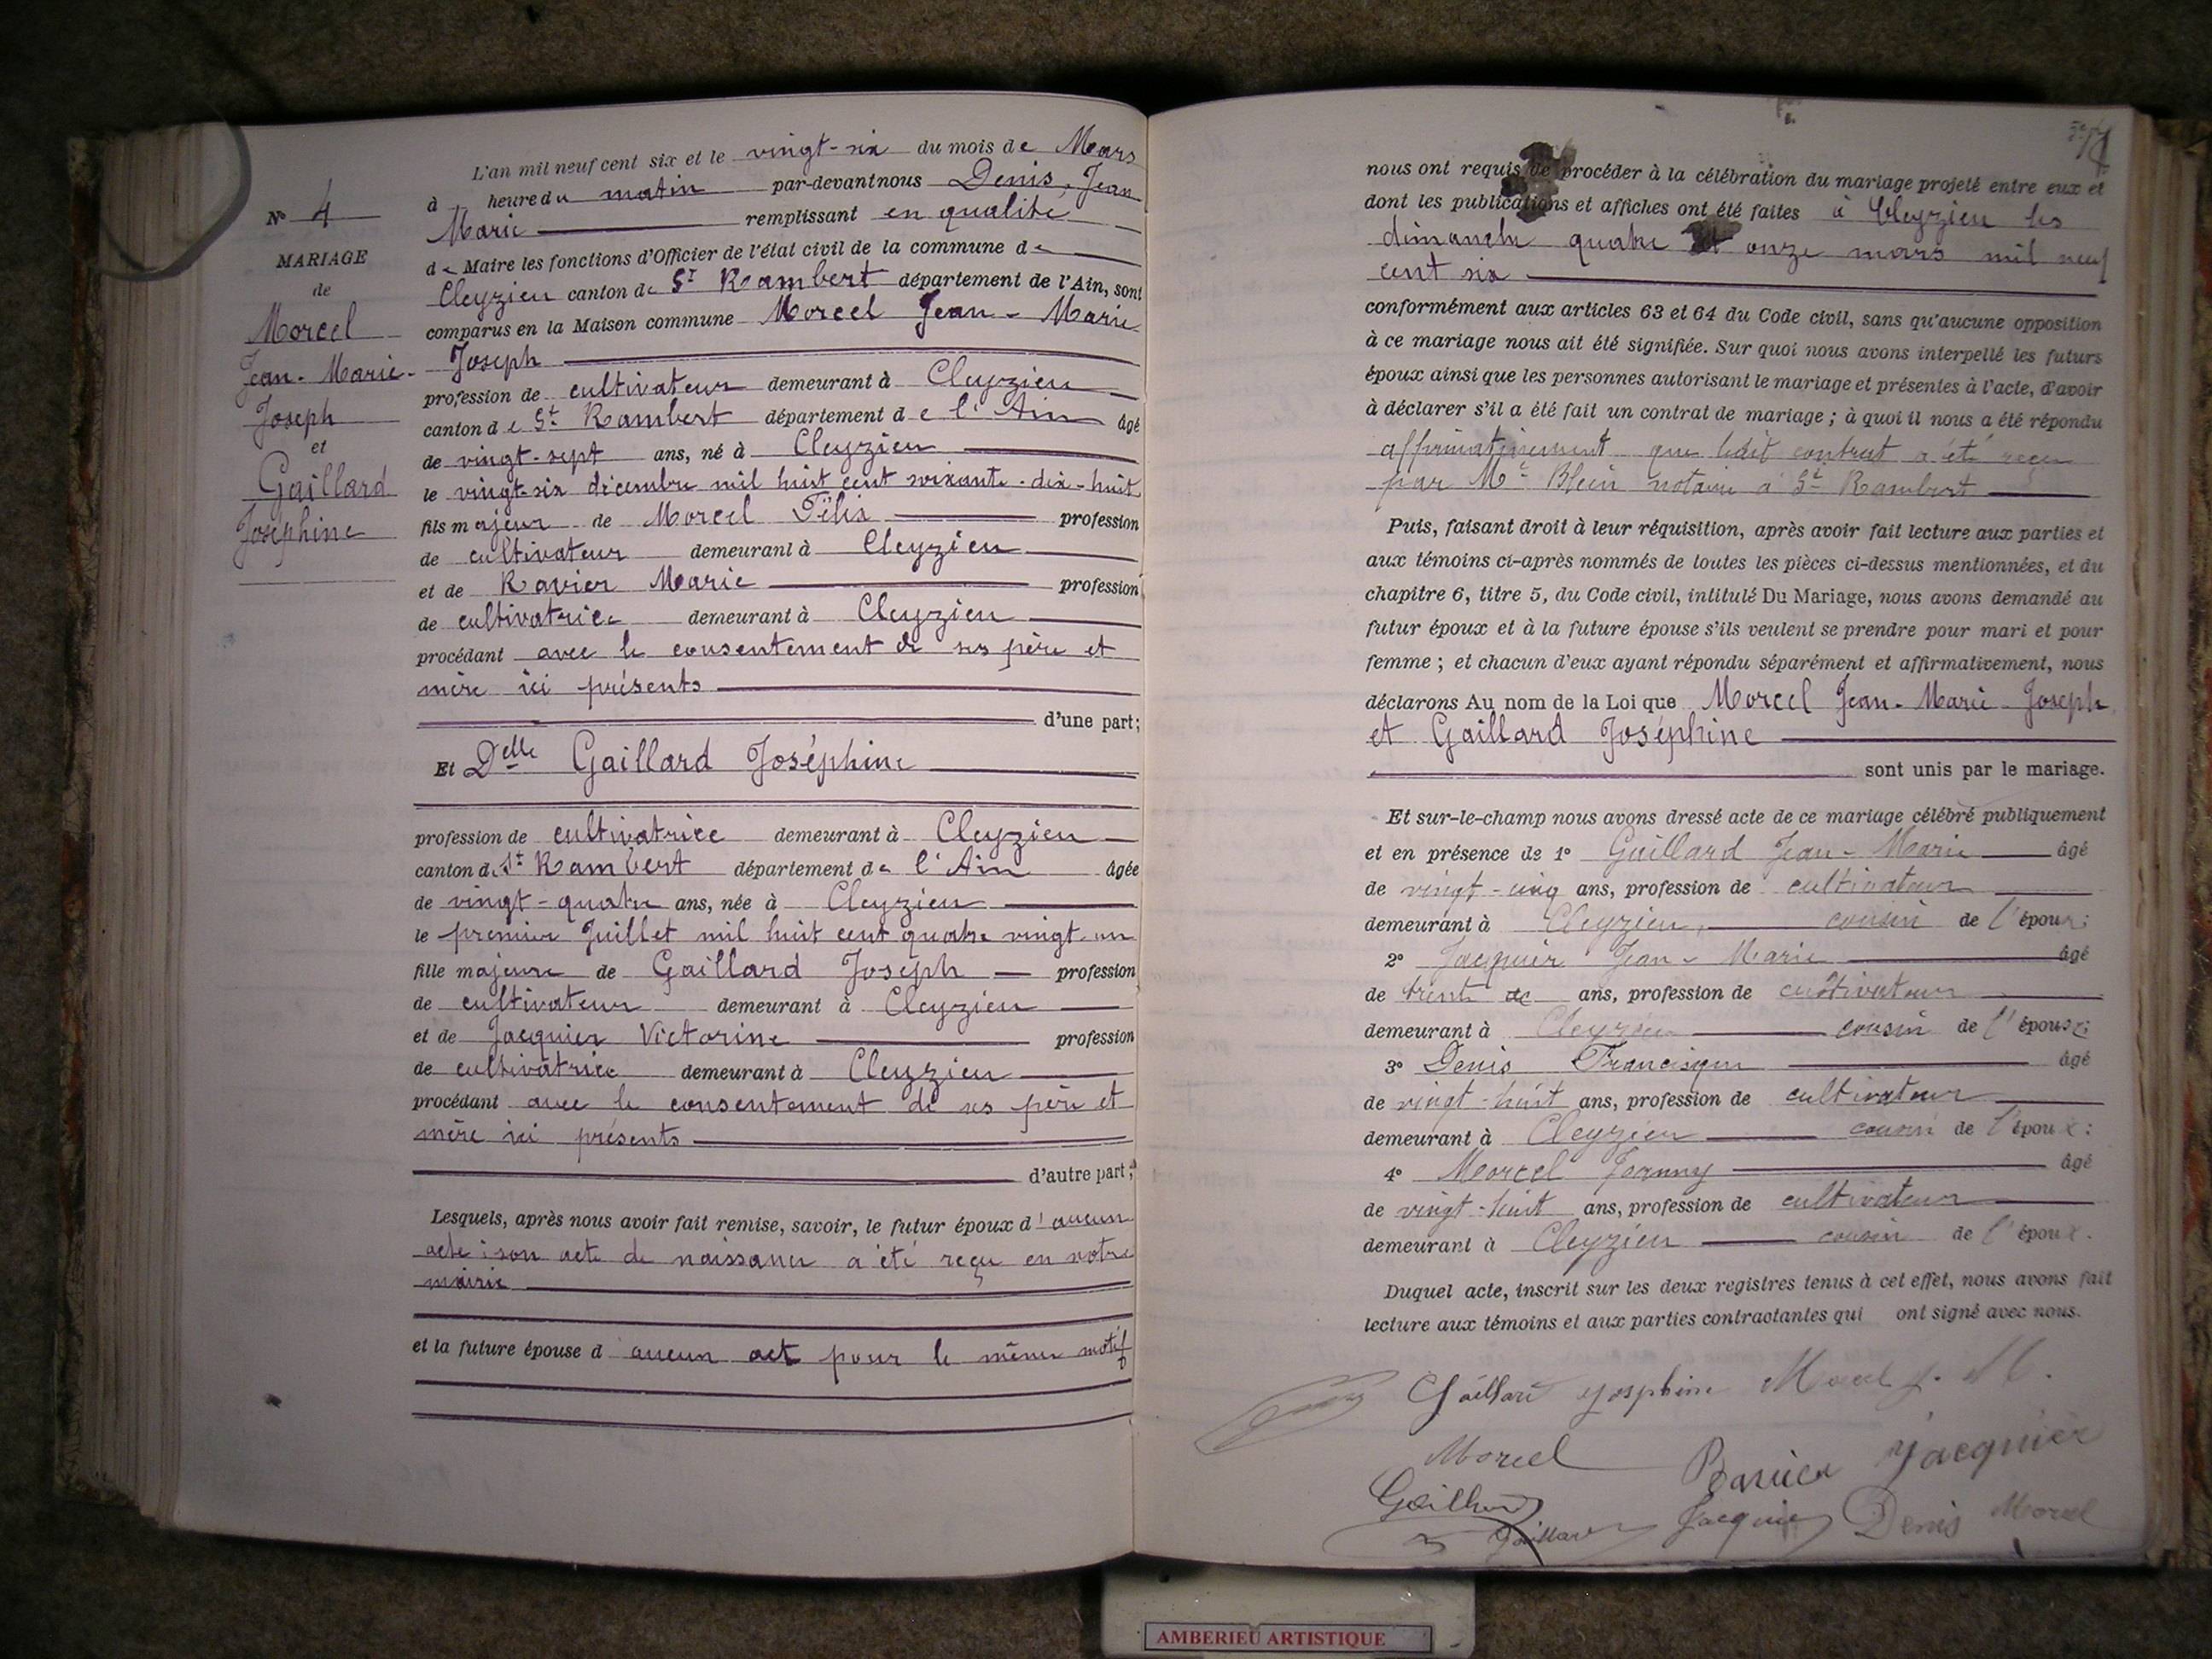 L'an mil neuf cent six et le vingt-six du mois de Mars
à heure du matin par-devant nous Denis, Jean
Marie remplissant en qualité
de Maire les fonctions d'Officier de l'état civil de la commune de
Cleyzieu canton de St Rambert département de l'Ain, sont
comparus en la Maison commune Morcel Jean-Marie
Joseph
profession de cultivateur demeurant à Cleyzieu
canton de St Rambert département de l'Ain âgé
de vingt-sept ans, né à Cleyzieu
le vingt-six décembre mil huit cent soixante-dix-huit
fils majeur de Morcel Félix profession
de cultivateur demeurant à Cleyzieu
et de Ravier Marie profession
de cultivatrice demeurant à Cleyzieu
procédant avec le consentement de ses père et
mère ici présents
d'une part;
Et Delle Gaillard Joséphine
profession de cultivatrice demeurant à Cleyzieu
canton de St Rambert département de l'Ain âgée
de vingt-quatre ans, née à Cleyzieu
le premier Juillet mil huit cent quatre vingt-un
fille majeure de Gaillard Joseph profession
de cultivateur demeurant à Cleyzieu
et de Jacquier Victorine profession
de cultivatrice demeurant à Cleyzieu
procédant avec le consentement de ses père et
mère ici présents
d'autre part;
Lesquels, après nous avoir fait remise, savoir, le futur époux d'aucun
acte: son acte de naissance a été reçu en notre
mairie
et la future épouse d'aucun acte pour le même motif
N° 4
MARIAGE
de
Morcel
Jean-Marie-
Joseph
et
Gaillard
Joséphine
nous ont requis de procéder à la célébration du mariage projeté entre eux et
dont les publications et affiches ont été faites à Cleyzieu les
dimanche quatre et onze mars mil neuf
cent six
conformément aux articles 63 et 64 du Code civil, sans qu'aucune opposition
à ce mariage nous ait été signifiée. Sur quoi nous avons interpellé les futurs
époux ainsi que les personnes autorisant le mariage et présentes à l'acte, d'avoir
à déclarer s'il a été fait un contrat de mariage; à quoi il nous a été répondu
affirmativement que ledit contrat a été reçu
par Me Blein notaire à St Rambert
Puis, faisant droit à leur réquisition, après avoir fait lecture aux parties et
aux témoins ci-après nommés de toutes les pièces ci-dessus mentionnées, et du
chapitre 6, titre 5, du Code civil, intitulé Du Mariage, nous avons demandé au
futur époux et à la future épouse s'ils veulent se prendre pour mari et pour
femme; et chacun d'eux ayant répondu séparément et affirmativement, nous
déclarons Au nom de la Loi que Morcel Jean-Marie-Joseph
et Gaillard Joséphine
sont unis par le mariage.
Et sur-le-champ nous avons dressé acte de ce mariage célébré publiquement
et en présence de 1° Gaillard Jean-Marie âgé
de vingt-cinq ans, profession de cultivateur
demeurant à Cleyzieu, cousin de l'époux;
2° Jacquier Jean-Marie âgé
de trente ans, profession de cultivateur
demeurant à Cleyzieu cousin de l'épouse;
3° Denis Francisque âgé
de vingt-huit ans, profession de cultivateur
demeurant à Cleyzieu cousin de l'époux:
4° Morcel Joanny âgé
de vingt-huit ans, profession de cultivateur
demeurant à Cleyzieu cousin de l'époux.
Duquel acte, inscrit sur les deux registres tenus à cet effet, nous avons fait
lecture aux témoins et aux parties contractantes qui ont signé avec nous.
Gaillard Josphine Morcel J. M.
Morcel Jacquier
Gaillard Gaillard Jacquier Denis Morcel
AMBERIEU ARTISTIQUE